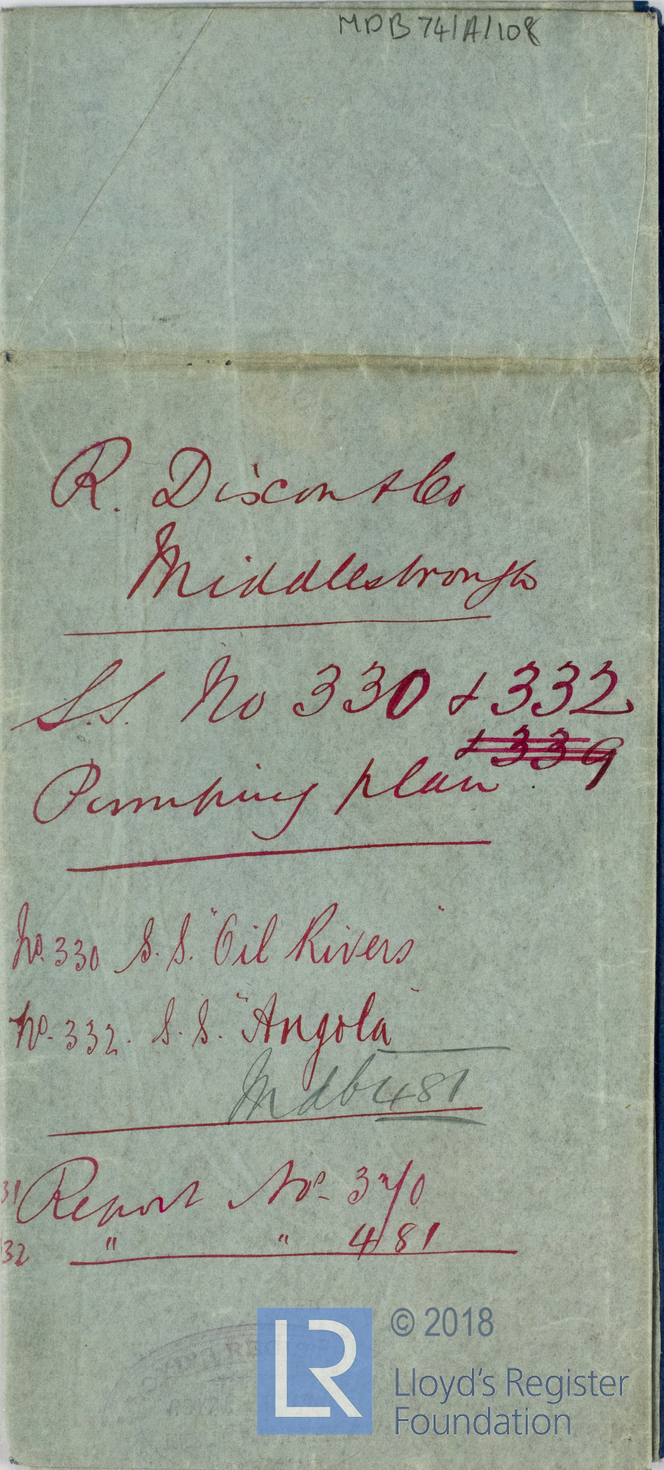 MDB 74/A/108
R. Dixon & Co
Middlesbrough
S.S. No 330 & 332
& 339
Pumping plan
No. 330 S.S. "Oil Rivers"
No. 332. S.S. "Angola"
Mdb 481
31 Report No. 370
32 " " 481
© 2018
LR
Lloyd's Register
Foundation